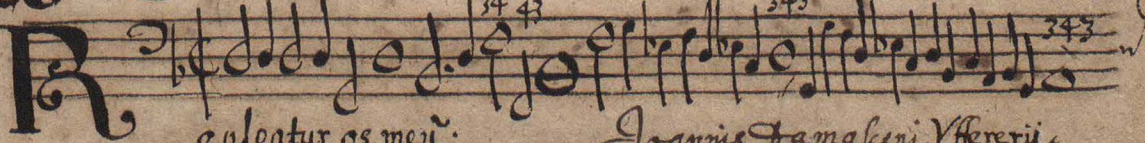 34 43 343 343
R epleatur os meũ. Joannis Damasceni Vffererij.